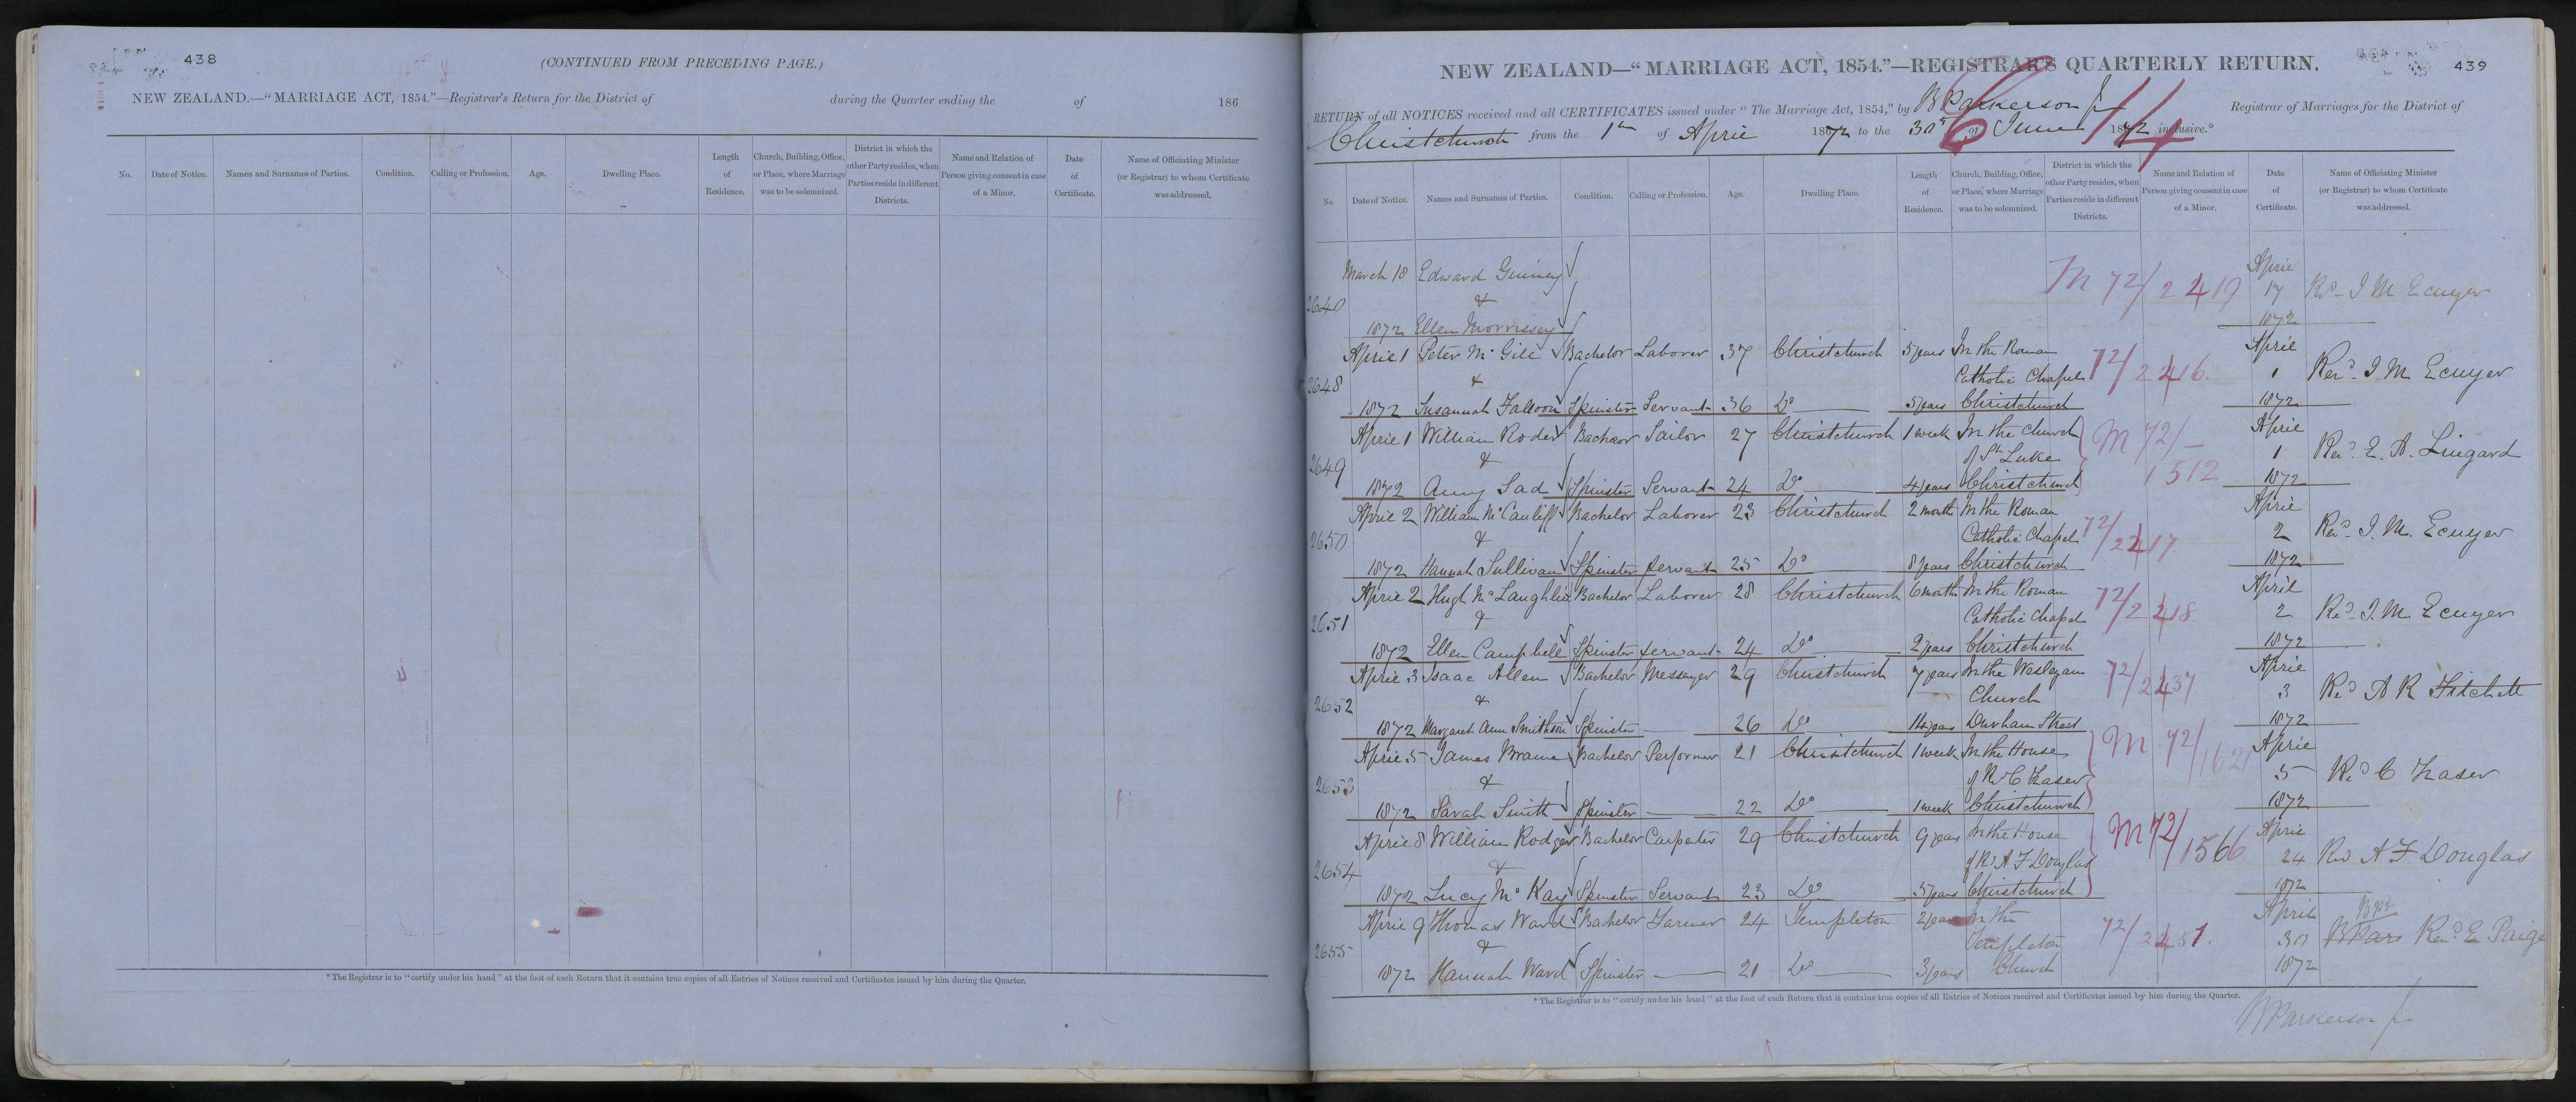 438
(CONTINUED FROM PRECEDING PAGE.)
NEW ZEALAND.—"MARRIAGE ACT, 1854."—Registrar's Return for the District of during the Quarter ending the of 186
No. Date of Notice. Names and Surnames of Parties. Condition. Calling or Profession. Age. Dwelling Place. Length of Residence. Church, Building, Office, or Place, where Marriage was to be solemnized. District in which the other Party resides, when Parties reside in different Districts. Name and Relation of Person giving consent in case of a Minor. Date of Certificate. Name of Officiating Minister (or Registrar) to whom Certificate was addressed.
* The Registrar is to "certify under his hand" at the foot of each Return that it contains true copies of all Entries of Notices received and Certificates issued by him during the Quarter.
439
NEW ZEALAND—"MARRIAGE ACT, 1854."—REGISTRAR'S QUARTERLY RETURN.
RETURN of all NOTICES received and all CERTIFICATES issued under "The Marriage Act, 1854," by B Parkerson Jr Registrar of Marriages for the District of
Christchurch from the 1st of April 1872 to the 30th of June 1872 inclusive.*
6/14
No. Date of Notice. Names and Surnames of Parties. Condition. Calling or Profession. Age. Dwelling Place. Length of Residence. Church, Building, Office, or Place, where Marriage was to be solemnized. District in which the other Party resides, when Parties reside in different Districts. Name and Relation of Person giving consent in case of a Minor. Date of Certificate. Name of Officiating Minister (or Registrar) to whom Certificate was addressed.
March 18 Edward Guiney April
2640 & M 72/2419 17 Rev I M Ecuyer
1872 Ellen Morrissey 1872
April 1 Peter McGill Bachelor Laborer 37 Christchurch 5 years In the Roman April
2648 & Catholic Chapel 72/2416 1 Revd I M Ecuyer
1872 Susannah Falloon Spinster Servant 36 Do 5 years Christchurch 1872
April 1 William Roder Bachelor Sailor 27 Christchurch 1 week In the Church M 72/- April
2649 & of St Luke 1512 1 Revd E. A. Lingard
1872 Amy Lad Spinster Servant 24 Do 4 years Christchurch 1872
April 2 William McCauliff Bachelor Laborer 23 Christchurch 2 month In the Roman April
2650 & Catholic Chapel 72/2417 2 Revd I. M. Ecuyer
1872 Hannah Sullivan Spinster Servant 25 Do 8 years Christchurch 1872
April 2 Hugh McLaughlin Bachelor Laborer 28 Christchurch 6 months In the Roman April
2651 & Catholic Chapel 72/2418 2 Revd I. M. Ecuyer
1872 Ellen Campbell Spinster Servant 24 Do 2 years Christchurch 1872
April 3 Isaac Allen Bachelor Messenger 29 Christchurch 7 years In the Wesleyan April
2652 & Church 72/2437 3 Revd A R Fitchett
1872 Margaret Ann Smithson Spinster 26 Do 14 years Durham Street 1872
April 5 James Brame Bachelor Performer 21 Christchurch 1 week In the House April
2653 & of Rev C Fraser M 72/1621 5 Revd C Fraser
1872 Sarah Smith Spinster 22 Do 1 week Christchurch 1872
April 8 William Rodger Bachelor Carpenter 29 Christchurch 9 years In the House April
2654 & of Rev A F Douglas M 72/1566 24 Rev A F Douglas
1872 Lucy McKay Spinster Servant 23 Do 5 years Christchurch 1872
April 9 Thomas Ward Bachelor Farmer 24 Templeton 2 years In the April
2655 & Templeton 72/2451 30 Revd E Paige
1872 Hannah Ward Spinster 21 Do 3 years Church 1872
* The Registrar is to "certify under his hand" at the foot of each Return that it contains true copies of all Entries of Notices received and Certificates issued by him during the Quarter.
B Parkerson Jr